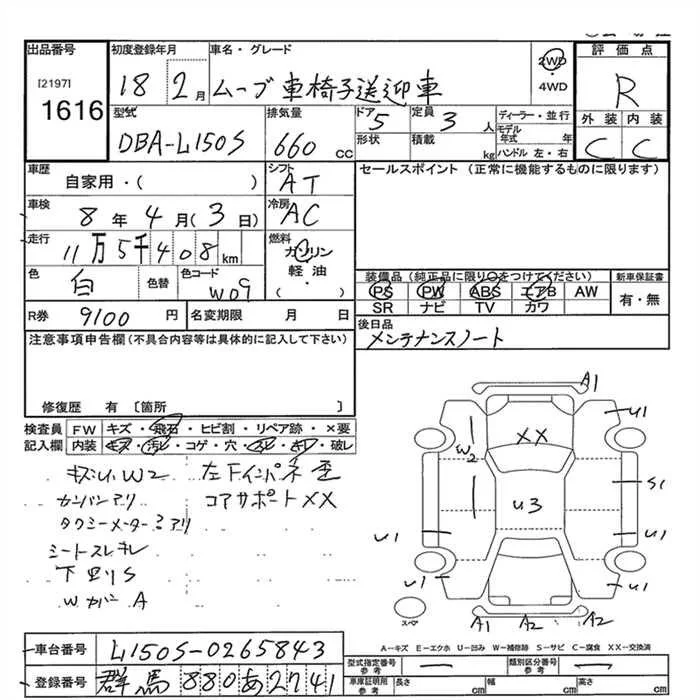 出品番号
[2197]
1616
初度登録年月
18 2月
車名・グレード
ムーブ 車椅子送迎車
2WD
・
4WD
評価点
R
外装 内装
C C
型式
DBA-L150S
排気量
660 cc
ドア
5
形状
定員
3 人
積載
kg
ディーラー・並行
モデル年式 年
ハンドル 左・右
車歴
自家用・( )
シフト
AT
セールスポイント (正常に機能するものに限ります)
車検
8年4月(3日)
冷房
AC
走行
11万5千408km
燃料
ガソリン
軽油・
( )
色
白
色替
色コード
W09
装備品(純正品に限り○をつけてください)
PS PW ABS エアB AW
SR ナビ TV カワ
新車保証書
有・無
R券 9100円
名変期限 月 日
後日品
メンテナンスノート
注意事項申告欄(不具合内容等は具体的に記入して下さい)
修復歴 有 〔箇所
検査員
記入欄
FW キズ・飛石・ヒビ割・リペア跡・×要
内装 キズ・汚レ・コゲ・穴・スレ・キレ・破レ
キズレW2
カンバンアリ
タクシーメーターアリ
シートスレキレ
下回りS
WカバーA
左下インパネ歪
コアサポートXX
A1
U1
XX
W2
U3
S1
U1
U1
U1
U1
A2
A1
A2
スペア
A-キズ E-エクボ U-凹み W-補修跡 S-サビ C-腐食 XX-交換済
車台番号
L150S-0265843
登録番号
群馬 880あ2741
型式指定番号
参考
類別区分番号
参考
車庫証明用
参考
長さ cm
幅 cm
高さ cm